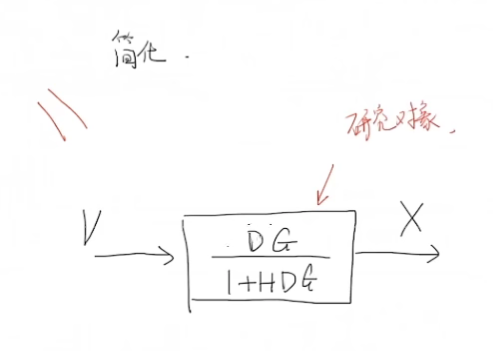 简化.
研究对象.
V
DG
1+HDG
X